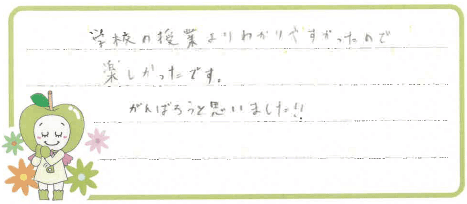 学校の授業よりわかりやすかったので
楽しかったです。
がんばろうと思いました!!